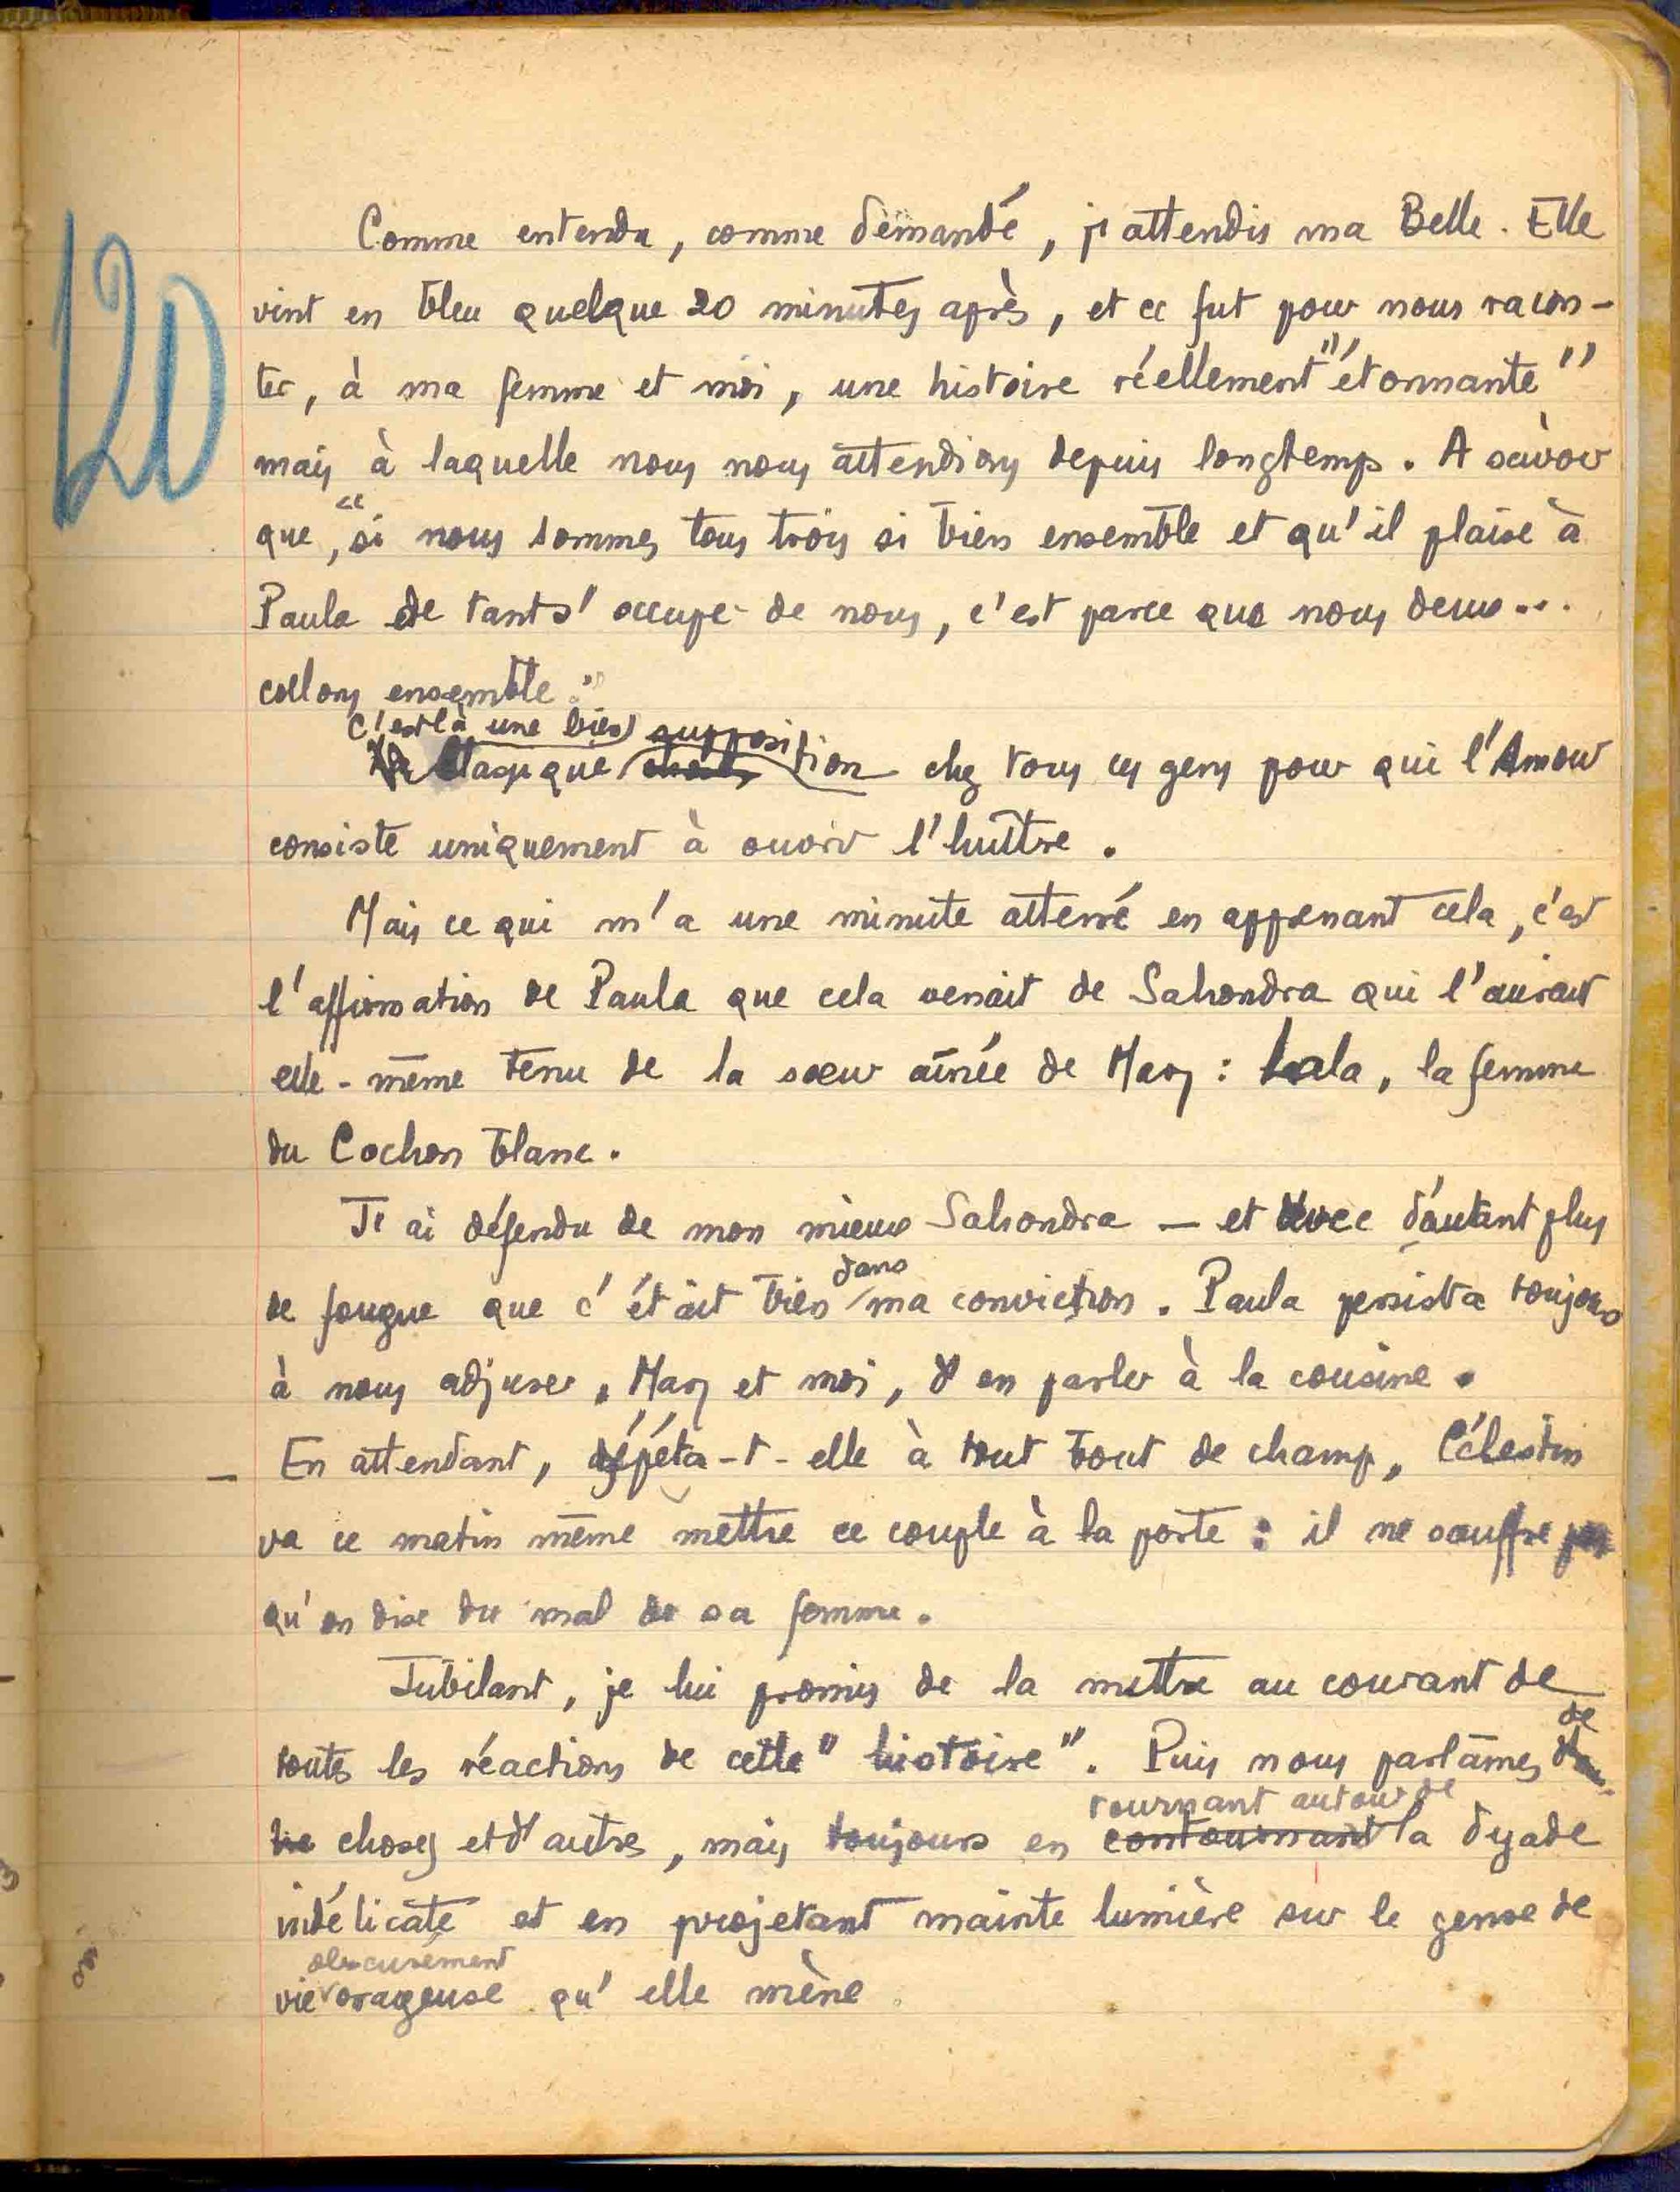 120
Comme entendu, comme demandé, j'attendis ma Belle. Elle
vint en bleu quelque 20 minutes après, et ce fut pour nous racon-
ter, à ma femme et moi, une histoire réellement "étonnante"
mais à laquelle nous nous attendions depuis longtemps. A savoir
que, "si nous sommes tous trois si bien ensemble et qu'il plaise à
Paula de tant s'occuper de nous, c'est parce que nous deux...
collons ensemble."
C'est là une bien supposi
classique tion chez tous ces gens pour qui l'Amour
consiste uniquement à ouvrir l'huître.
Mais ce qui m'a une minute atterré en apprenant cela, c'est
l'affirmation de Paula que cela venait de Sahondra qui l'aurait
elle-même tenu de la sœur aînée de Mary : Lala, la femme
du Cochon blanc.
J'ai défendu de mon mieux Sahondra — et avec d'autant plus
dans
de fougue que c'était bien ma conviction. Paula persista toujours
à nous adjurer, Mary et moi, d'en parler à la cousine.
— En attendant, répéta-t-elle à tout bout de champ, Célestin
va ce matin même mettre ce couple à la porte : il ne souffre pas
qu'on dise du mal de sa femme.
Jubilant, je lui promis de la mettre au courant de
toutes les réactions de cette "histoire". Puis nous parlâmes
de
choses et d'autres, mais toujours en contournant la dyade
tournant autour de
indélicate et en projetant mainte lumière sur le genre de
obscurément
vie orageuse qu'elle mène.